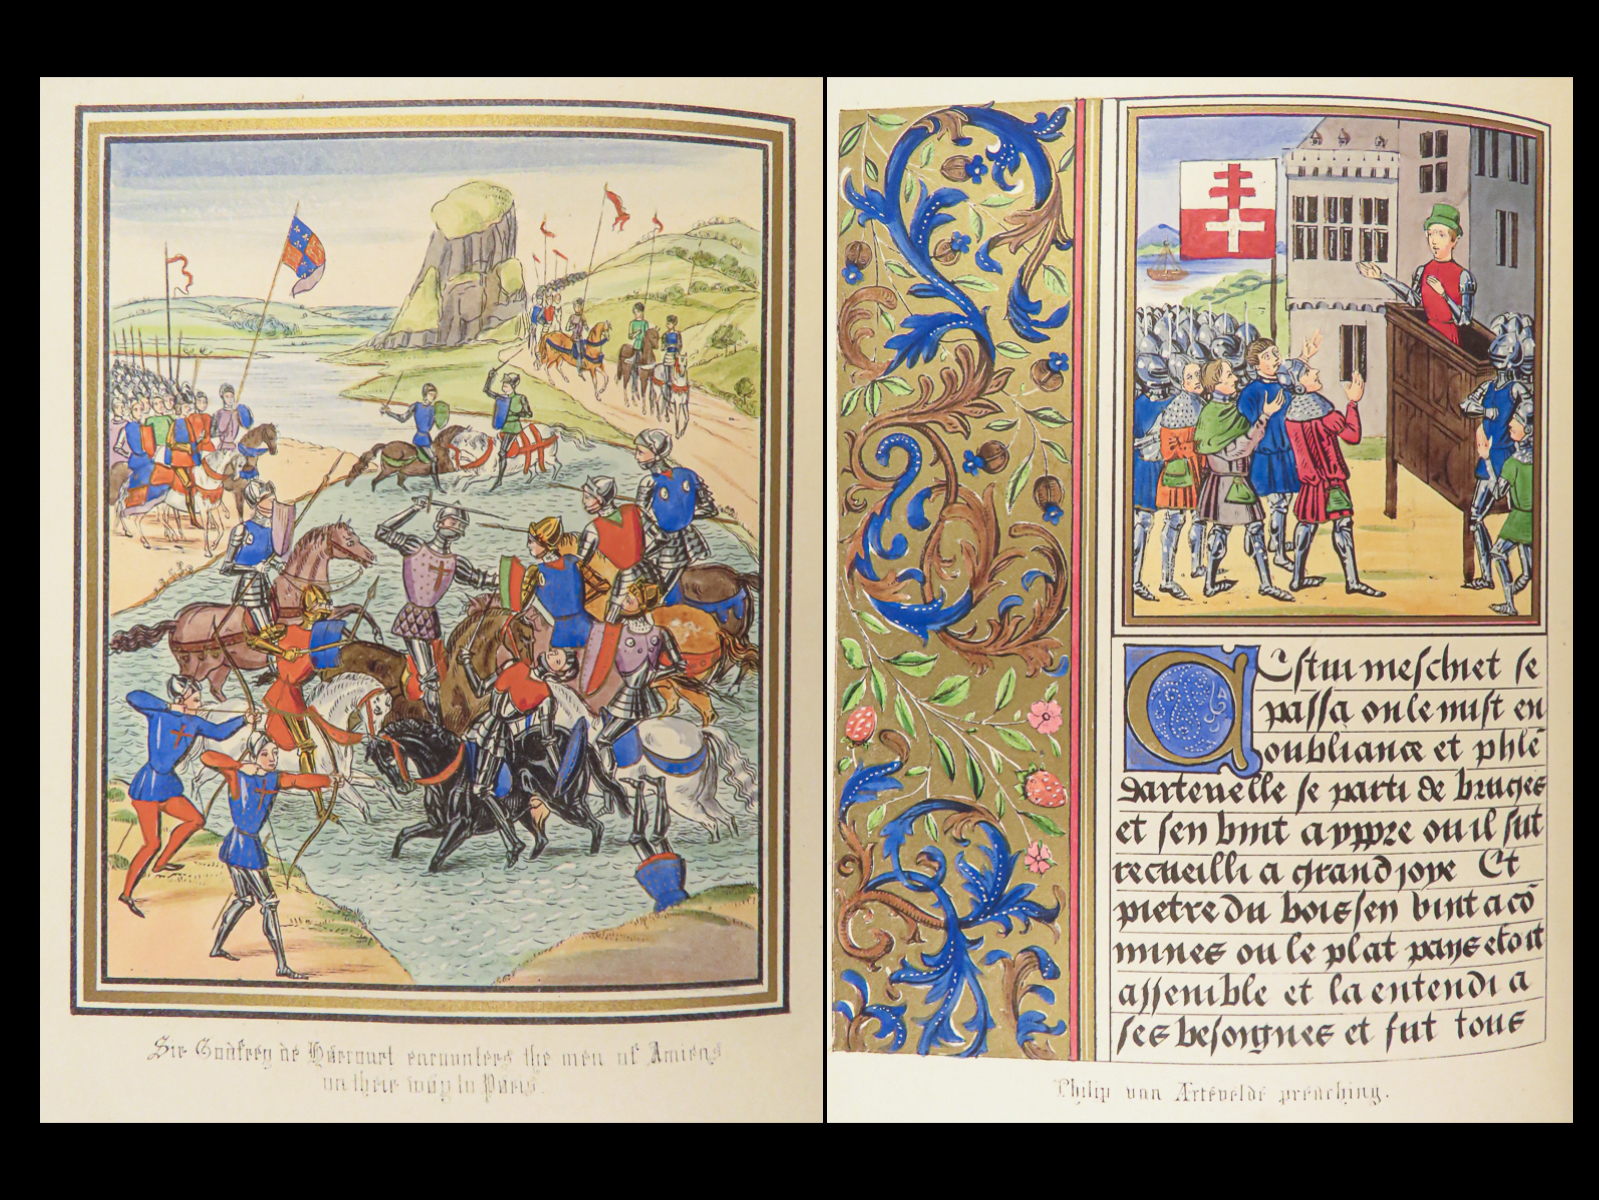 Sir Godfrey de Harcourt encounters the men of Amiens
on their way to Paris.
Cestui meschiet se
passa on le mist en
oubliance et phlē
dartevelle se parti de bruges
et sen vint a yppre ou il fut
recueilli a grand joye Et
pietre du bois sen vint a cō
mines ou le plat pays etoit
assemble et la entendi a
ses besoignes et fut tous
Philip van Artevelde preaching.